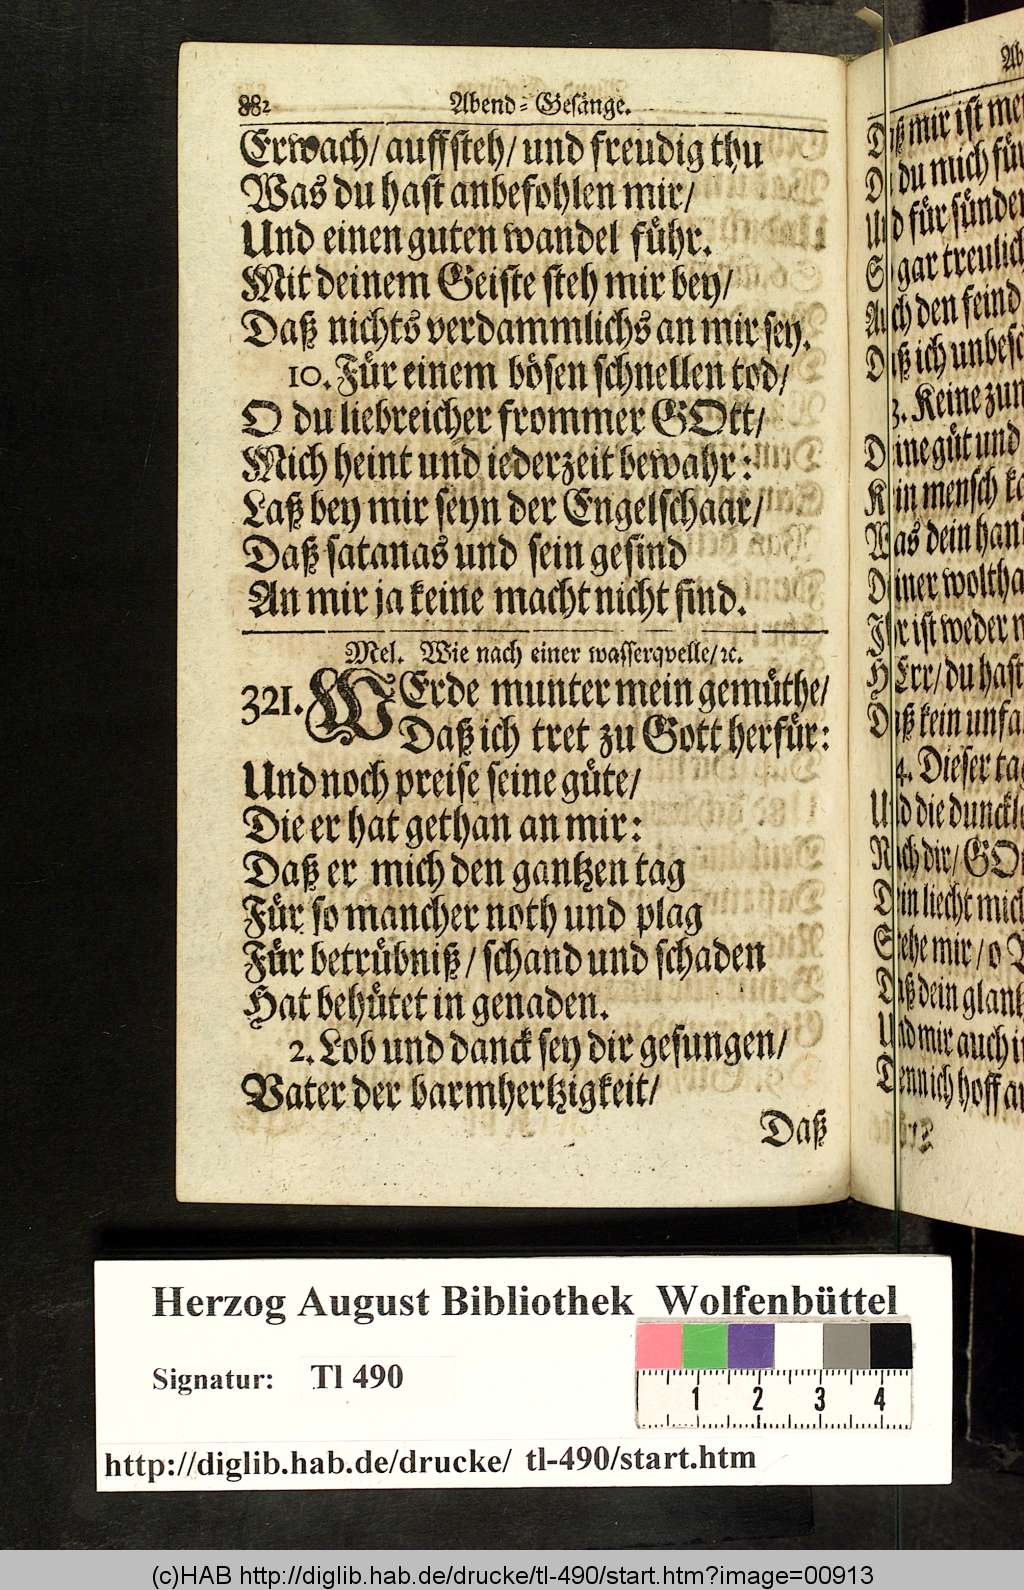 882 Abend-Gesänge.
Erwach/ auffsteh/ und freudig thu
Was du hast anbefohlen mir/
Und einen guten wandel führ.
Mit deinem Geiste steh mir bey/
Daß nichts verdammlichs an mir sey.
10. Für einem bösen schnellen tod/
O du liebreicher frommer GOtt/
Mich heint und iederzeit bewahr:
Laß bey mir seyn der Engelschaar/
Daß satanas und sein gesind
An mir ja keine macht nicht find.
Mel. Wie nach einer wasserqvelle/ꝛc.
321. WErde munter mein gemüthe/
Daß ich tret zu Gott herfür:
Und noch preise seine güte/
Die er hat gethan an mir:
Daß er mich den gantzen tag
Für so mancher noth und plag
Für betrübniß/ schand und schaden
Hat behütet in genaden.
2. Lob und danck sey dir gesungen/
Vater der barmhertzigkeit/
Daß
Ab
Daß mir ist
du mich für
Und für sünden
gar treulich
Auch den feind
Daß ich
3. Keine
Deine güt und
Kein mensch
Was dein
Deiner
Ihr ist weder
HErr/ du hast
Daß kein
4. Dieser
Und die
Nach dir/
Dein liecht mich
Stehe mir/ o
Daß dein
Und mir auch
Denn ich hoff
Herzog August Bibliothek Wolfenbüttel
Signatur: Tl 490
1 2 3 4
http://diglib.hab.de/drucke/ tl-490/start.htm
(c)HAB http://diglib.hab.de/drucke/tl-490/start.htm?image=00913